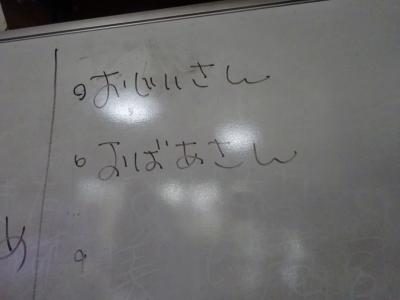 おじいさん
おばあさん
め